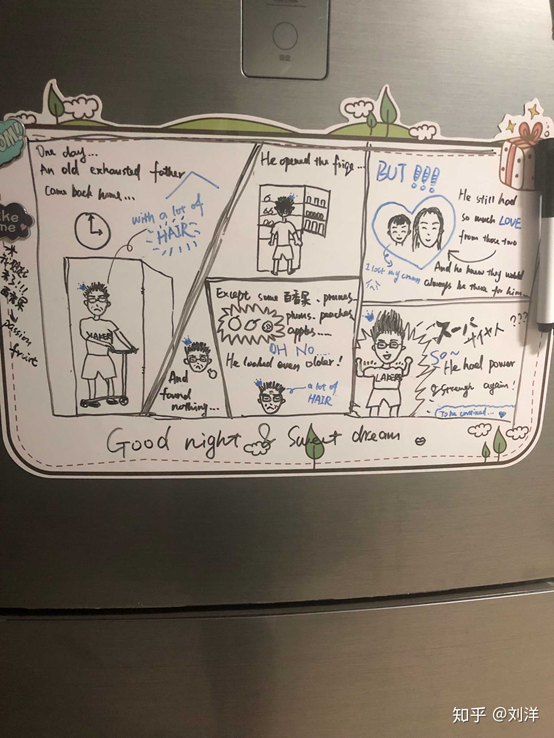 One day...
An old exhausted father
came back home...
with a lot of
HAIR
LAKERS
He opened the frige...
And
found
nothing...
Except some 百香果、prunes、
plums、peaches
apples.....
OH NO....
He looked even older!
a lot of
HAIR
BUT!!!
He still had
so much LOVE
from those two
And he knew they would
always be there for him...
I lost my crown
スーパー
サイヤ人???
SO~
He had power
& strength again!
LAKERS
To be continued...
Good night & Sweet dream
like
me
百香果
passion
fruit
知乎 @刘洋